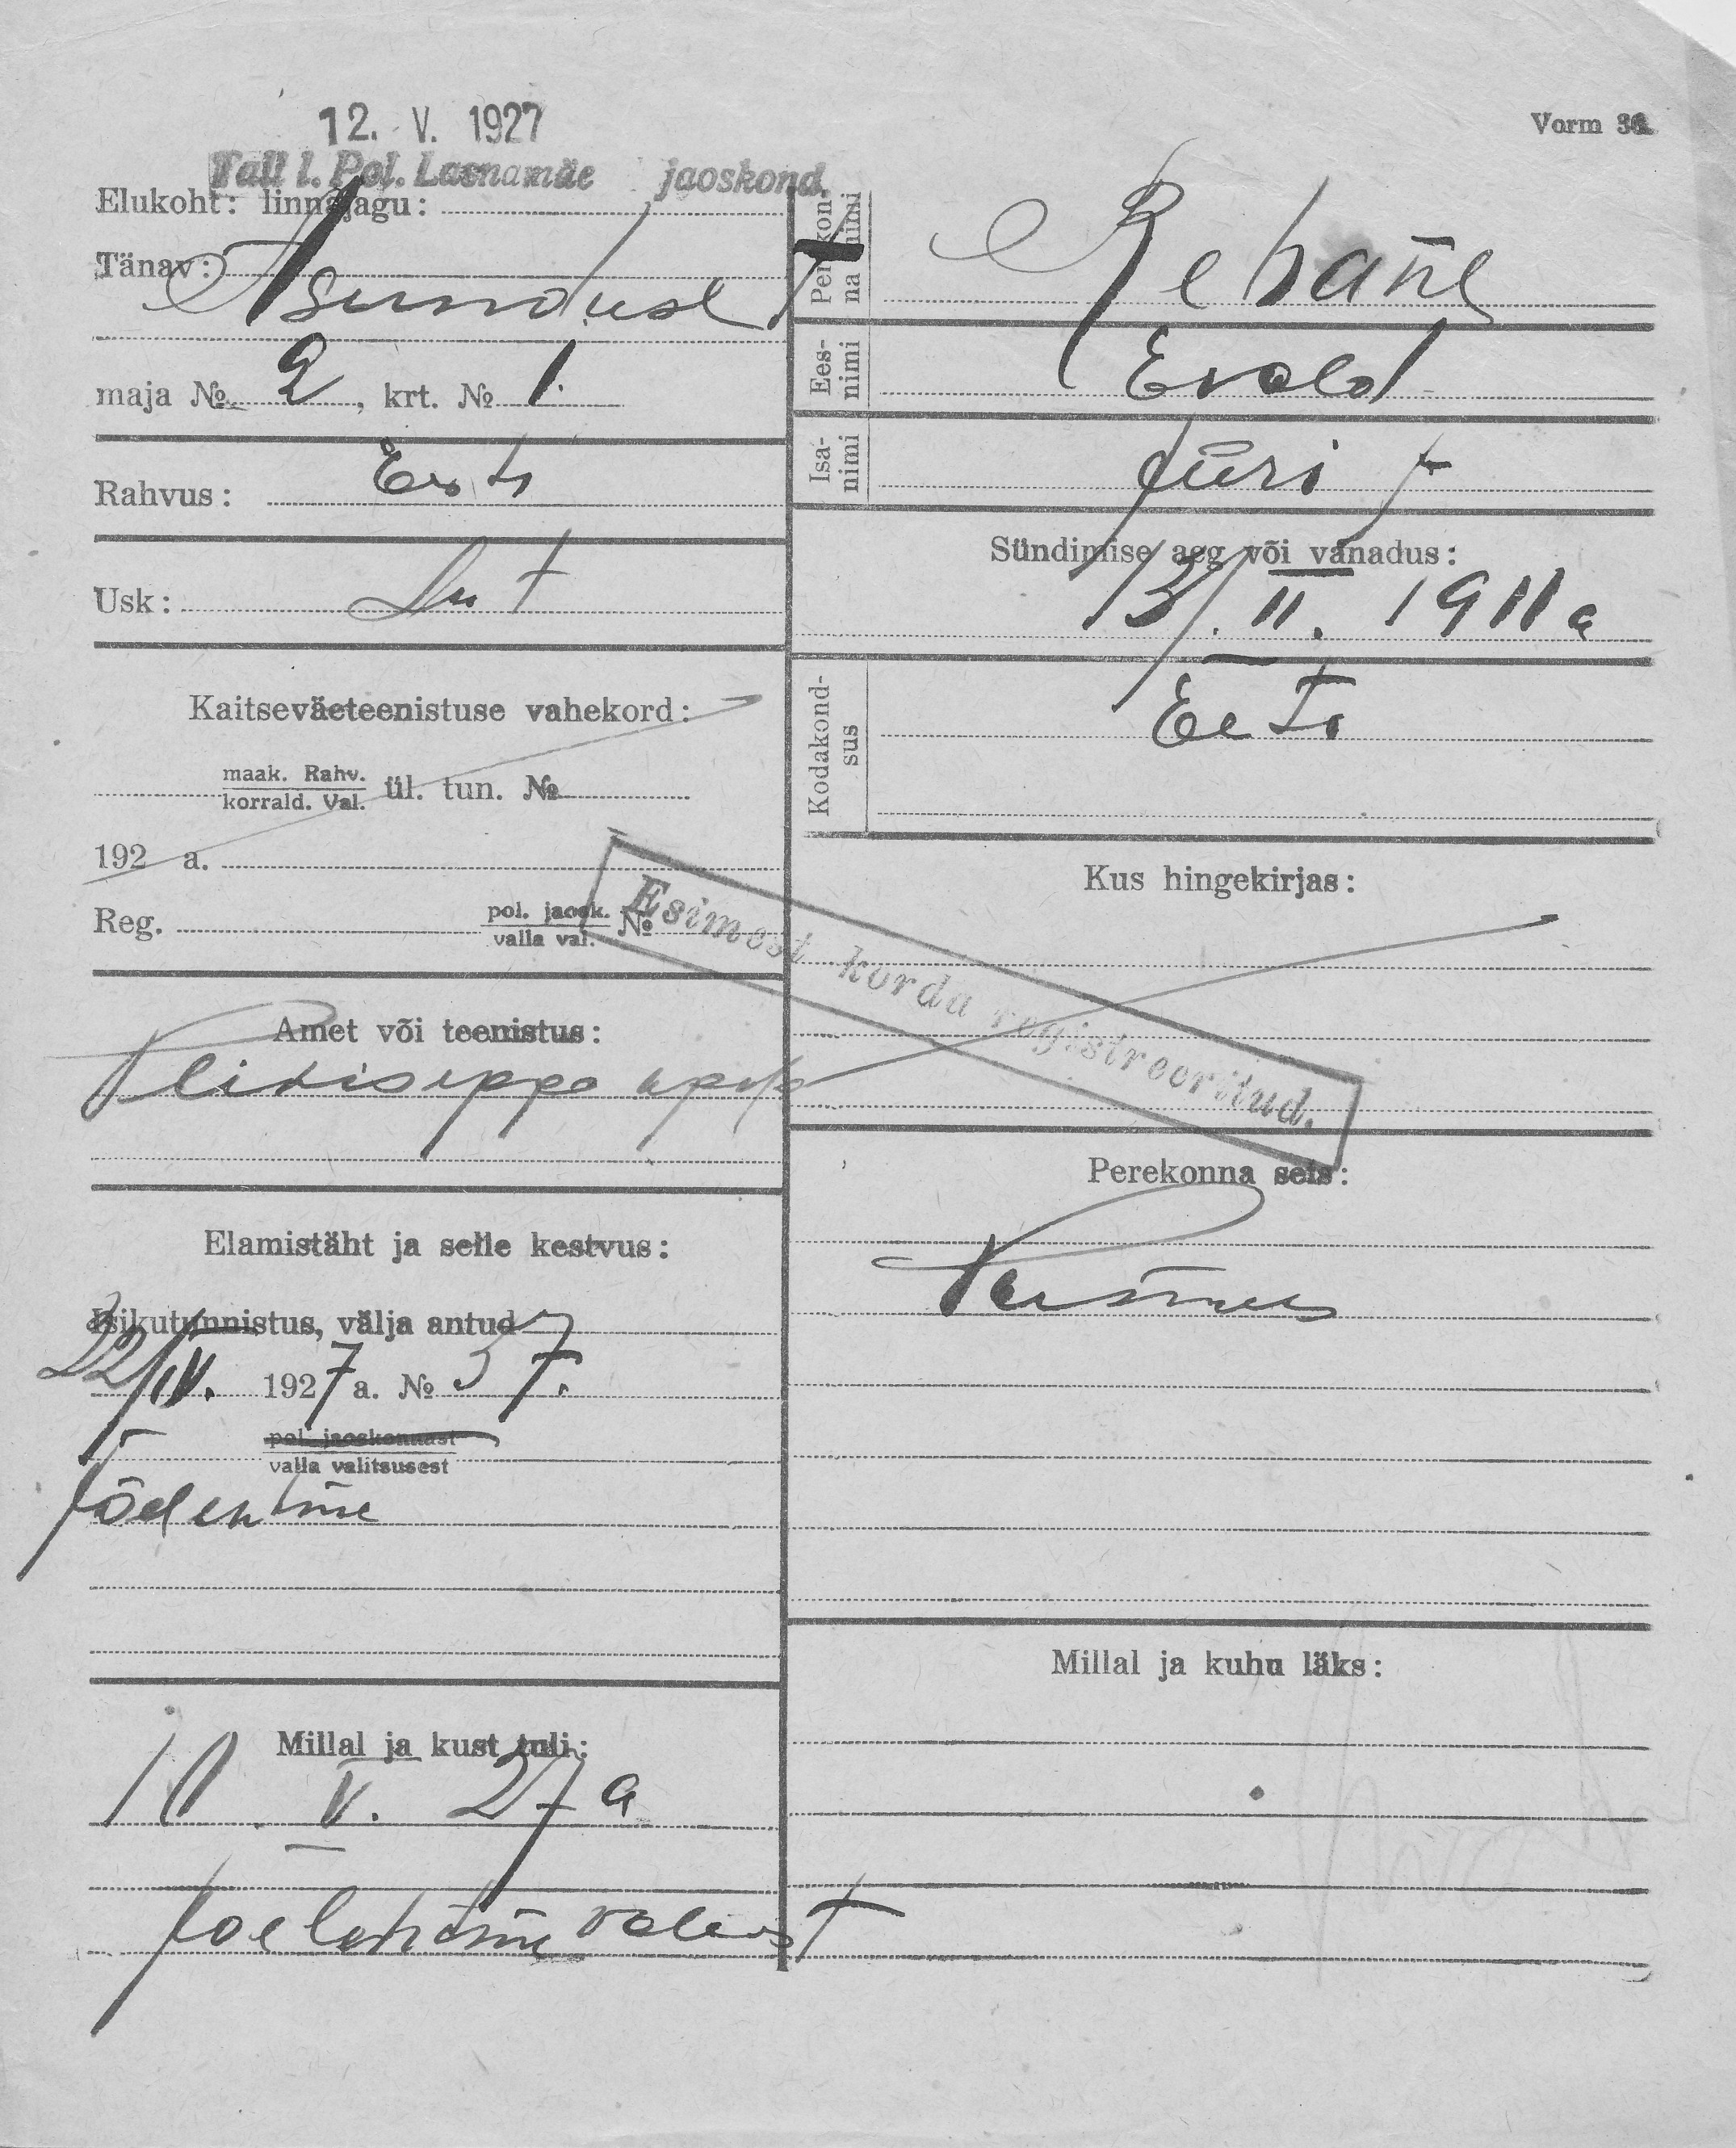 12. V. 1927
Vorm 36.
Tall l. Pol. Lasnamäe jaoskond.
Elukoht: linnajagu:
Tänav:
Asunduse
maja № 2, krt. № 1.
Rahvus: Eesti
Usk: Lut
Kaitseväeteenistuse vahekord:
maak. Rahv.
korrald. Val. ül. tun. №
192 a.
Reg. pol. jaosk. №
valla val.
Amet või teenistus:
Elamistäht ja selle kestvus:
Isikutunnistus, välja antud
22/IV. 1927 a. № 37.
pol. jaoskonnast
valla valitsusest
Millal ja kust tuli:
10. V. 27 a
Joelehtme vallast
Perekonna nimi
Rehane
Ees-nimi
Evald
Isa-nimi
Jüri
Sündimise aeg või vanadus:
13/. II. 1911 a
Kodakond-sus
Eesti
Kus hingekirjas:
Esimest korda registreeritud.
Perekonna seis:
Millal ja kuhu läks: